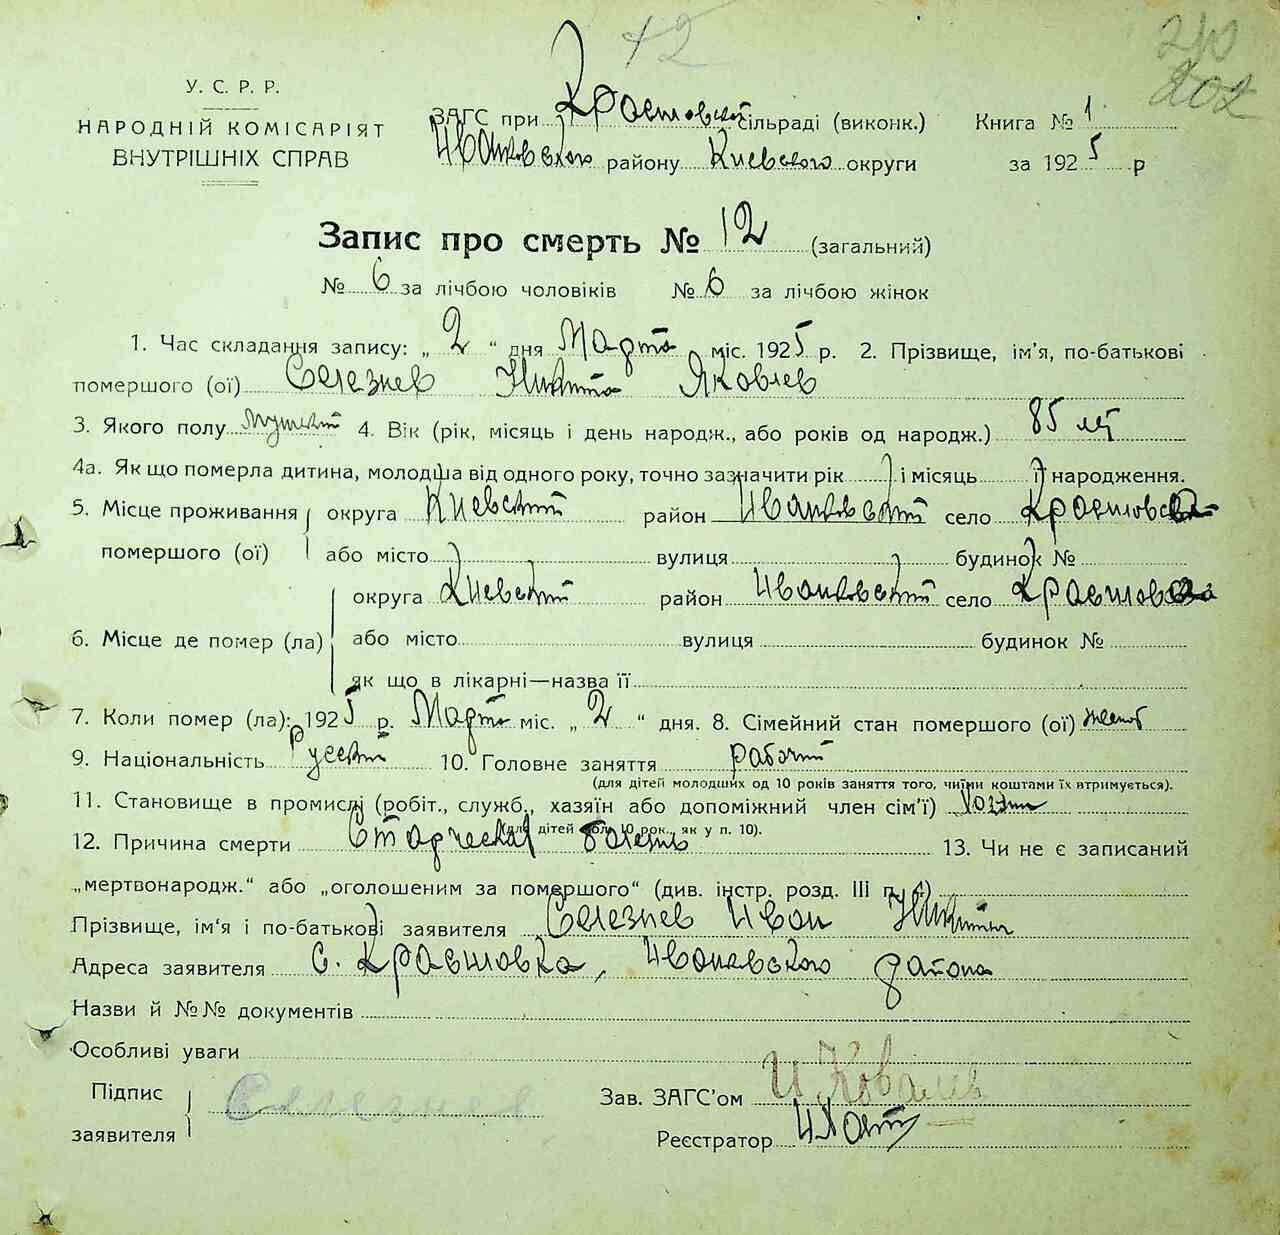 12
210
202
У. С. Р. Р.
НАРОДНІЙ КОМІСАРІЯТ
ВНУТРІШНІХ СПРАВ
ЗАГС при сільраді (виконк.)
Иванковского району Киевского округи
Книга № 1
за 1925 р
Запис про смерть № 12 (загальний)
№ 6 за лічбою чоловіків № 6 за лічбою жінок
1. Час складання запису: „ 2 “ дня Марта міс. 1925 р. 2. Прізвище, ім’я, по-батькові
помершого (ої) Селезнев Никита Яковлев
3. Якого полу 4. Вік (рік, місяць і день народж., або років од народж.) 85 лет
4а. Як що померла дитина, молодша від одного року, точно зазначити рік і місяць її народження.
5. Місце проживання округа Киевский район Иванковский село
помершого (ої) або місто вулиця будинок №
округа Киевский район Иванковский село
6. Місце де помер (ла) або місто вулиця будинок №
як що в лікарні—назва її
7. Коли помер (ла): 1925 р. Марта міс. „ 2 “ дня. 8. Сімейний стан помершого (ої) женат
9. Національність Русский 10. Головне заняття рабочий
(для дітей молодших од 10 років заняття того, чиїми коштами їх втримується).
11. Становище в промислі (робіт., служб., хазяїн або допоміжний член сім’ї)
(для дітей мол. 10 рок., як у п. 10).
12. Причина смерти Старческая болезнь 13. Чи не є записаний
„мертвонародж.“ або „оголошеним за помершого“ (див. інстр. розд. III п. 4)
Прізвище, ім’я і по-батькові заявителя Селезнев Иван Никитин
Адреса заявителя с. Иванковского района
Назви й №№ документів
Особливі уваги
Підпис
заявителя
Селезнев
Зав. ЗАГС’ом И Ковалев
Реєстратор